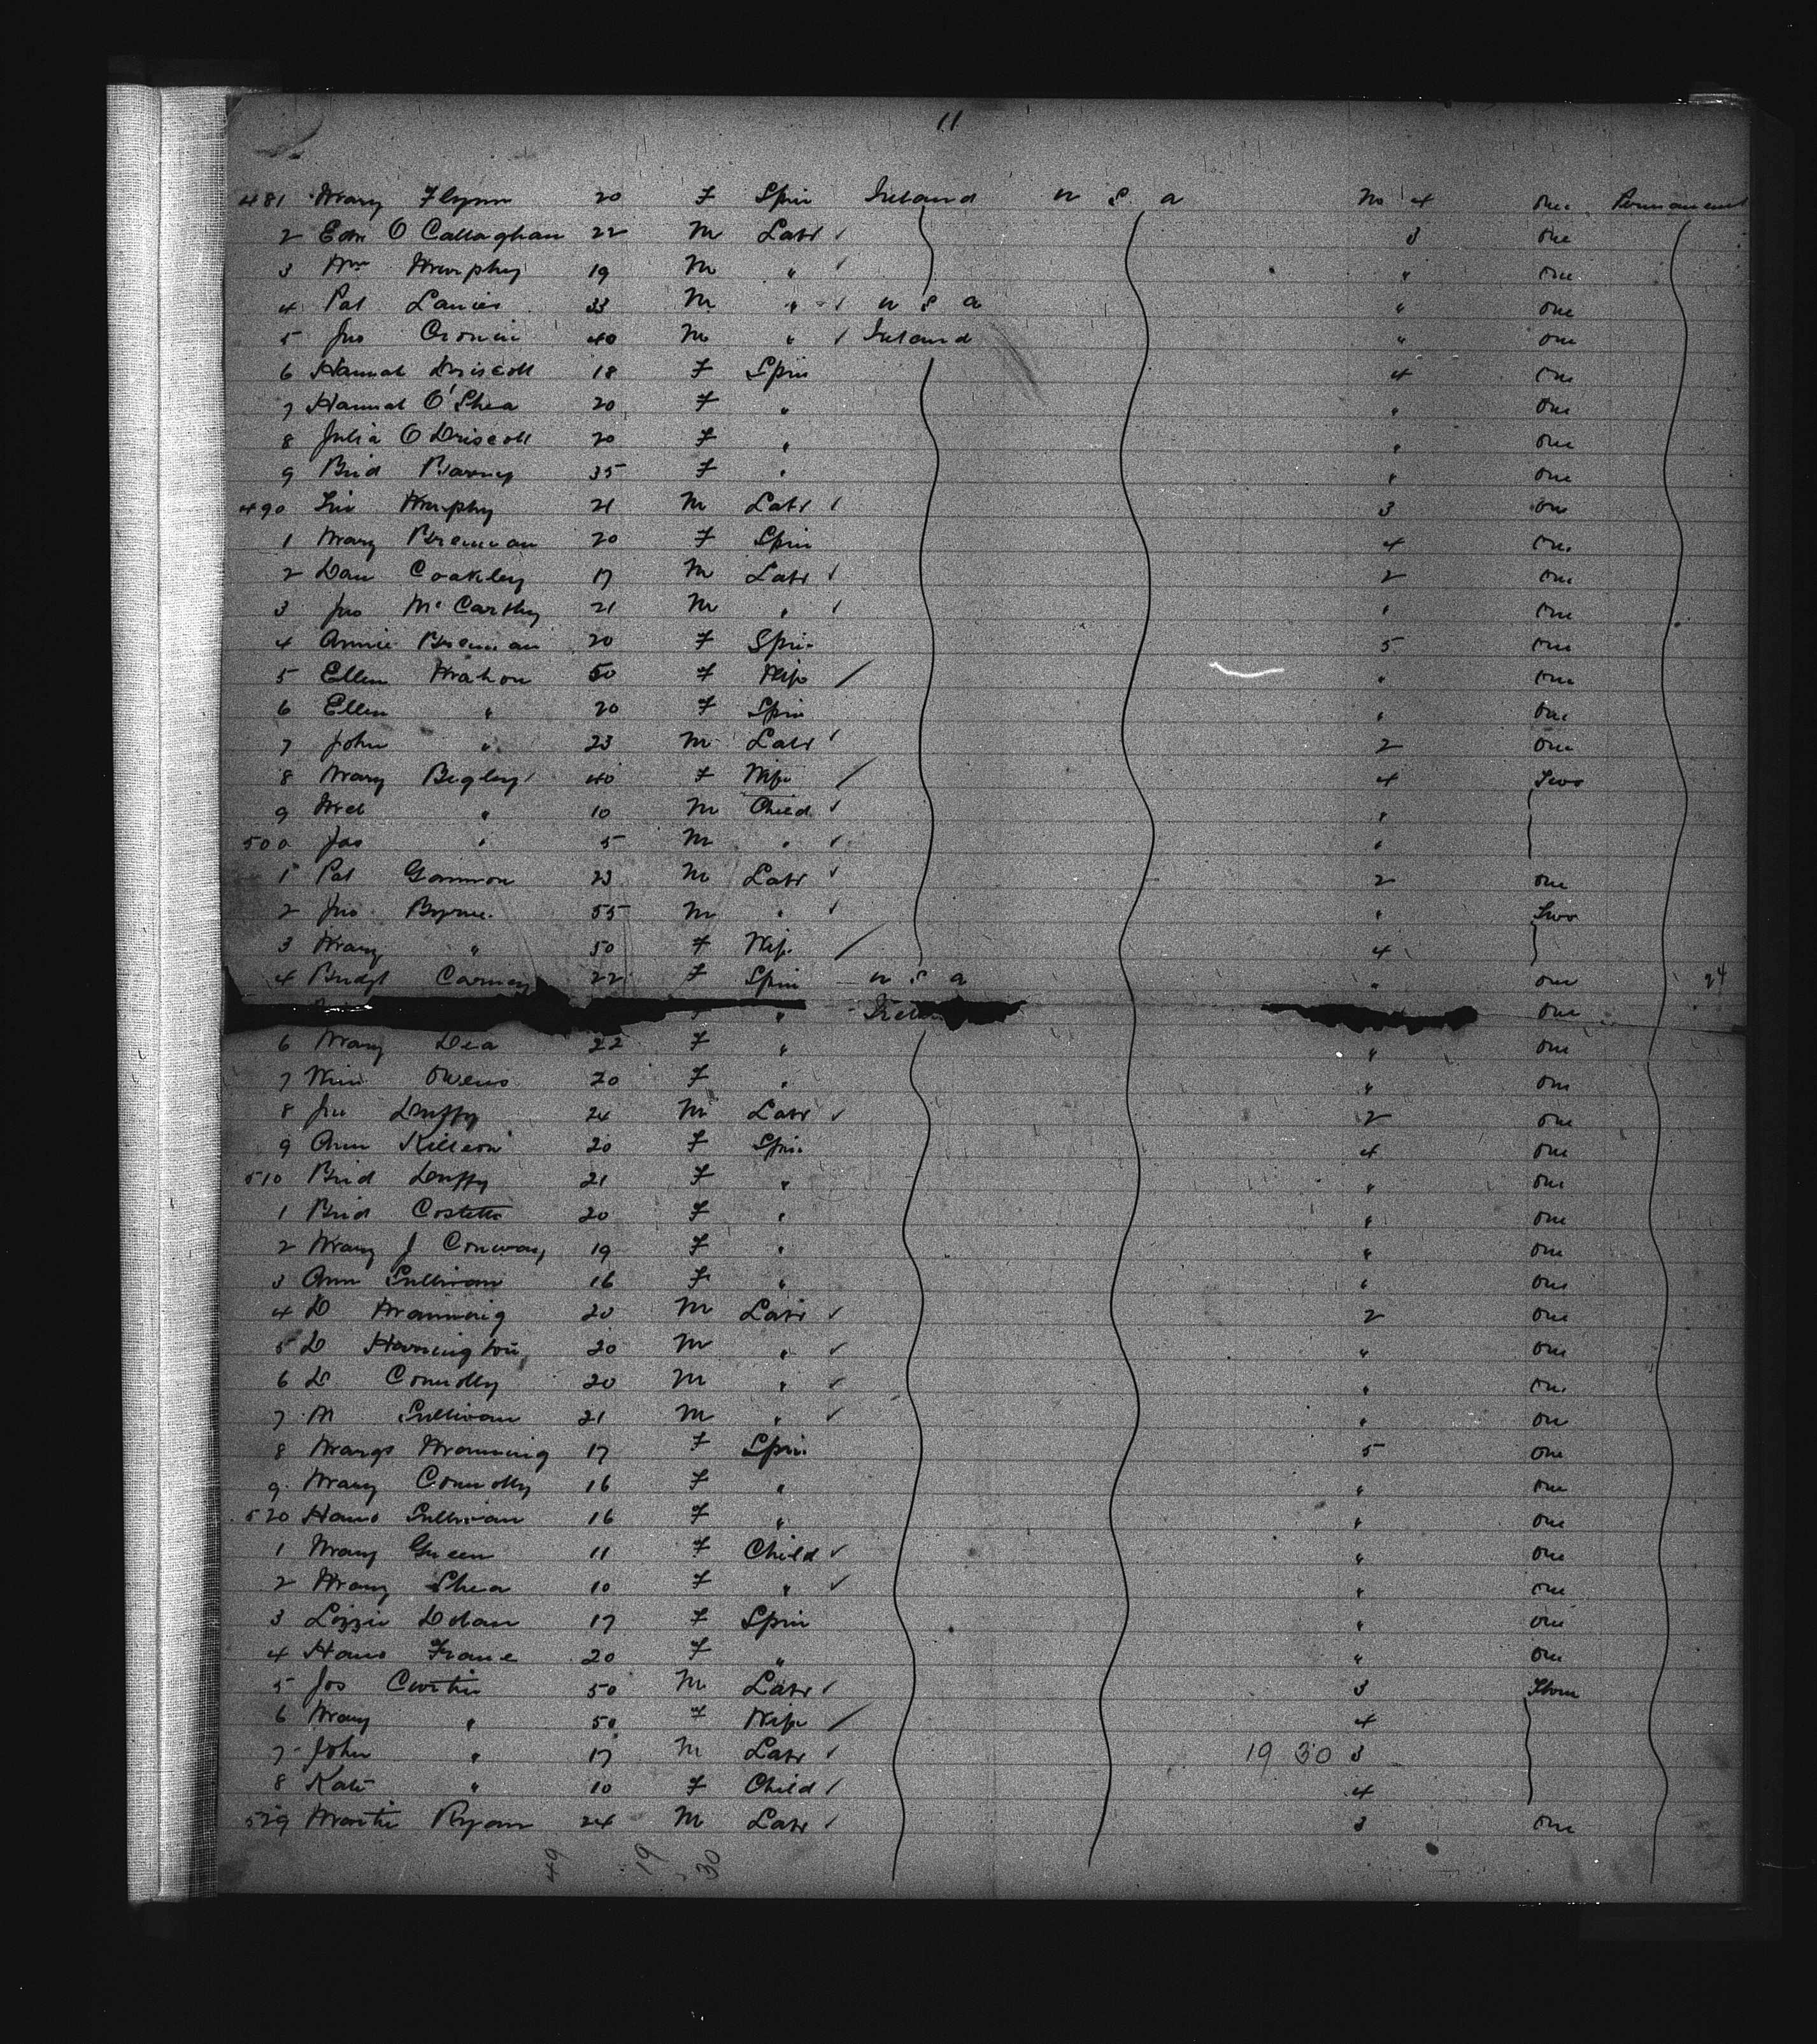 11
481 Mary Flynn 20 F Spin Ireland U S A No 4 one Permanent
2 Edw O Callaghan 22 M Labr ✓ 3 one
3 Wm Murphy 19 M " ✓ " one
4 Pat 33 M " ✓ U S A " one
5 Jno Cronin 40 M " ✓ Ireland " one
6 Hannah Driscoll 18 F Spin 4 one
7 Hannah O'Shea 20 F " " one
8 Julia O Driscoll 20 F " " one
9 Brid 35 F " " one
490 Murphy 21 M Labr ✓ 3 one
1 Mary Brennan 20 F Spin 4 one
2 Dan Coakley 17 M Labr ✓ 2 one
3 Jno McCarthy 21 M " ✓ " one
4 Annie Brennan 20 F Spin 5 one
5 Ellen Mahon 50 F Wife / " one
6 Ellen " 20 F Spin " one
7 John " 23 M Labr ✓ 2 one
8 Mary Begley 40 F Wife / 4 Two
9 Mcl " 10 M Child ✓ "
500 Jas " 5 M " ✓ "
1 Pat Gannon 23 M Labr ✓ 2 one
2 Jno Byrne 55 M " ✓ " Two
3 Mary " 50 F Wife / 4
4 Bridgt Carney 22 F Spin U S A " one 24
F " one
6 Mary Dea 22 F " " one
7 Win Owens 20 F " " one
8 Duffy 24 M Labr ✓ 2 one
9 Ann Killeen 20 F Spin 4 one
510 Brid Duffy 21 F " " one
1 Brid Costello 20 F " " one
2 Mary J Conway 19 F " " one
3 Ann Sullivan 16 F " " one
4 D Manning 20 M Labr ✓ 2 one
5 D Harrington 20 M " ✓ " one
6 D Connolly 20 M " ✓ " one
7 M Sullivan 21 M " ✓ " one
8 Margt Manning 17 F Spin 5 one
9 Mary Connolly 16 F " " one
520 Hano Sullivan 16 F " " one
1 Mary Green 11 F Child ✓ " one
2 Mary Shea 10 F " ✓ " one
3 Lizzie Dolan 17 F Spin " one
4 Hano Frane 20 F " " one
5 Jos Curtin 50 M Labr ✓ 3
6 Mary " 50 F Wife / 4
7 John " 17 M Labr ✓ 19 30 3
8 Kate " 10 F Child ✓ 4
529 Martin Ryan 24 M Labr ✓ 3 one
49 19 30